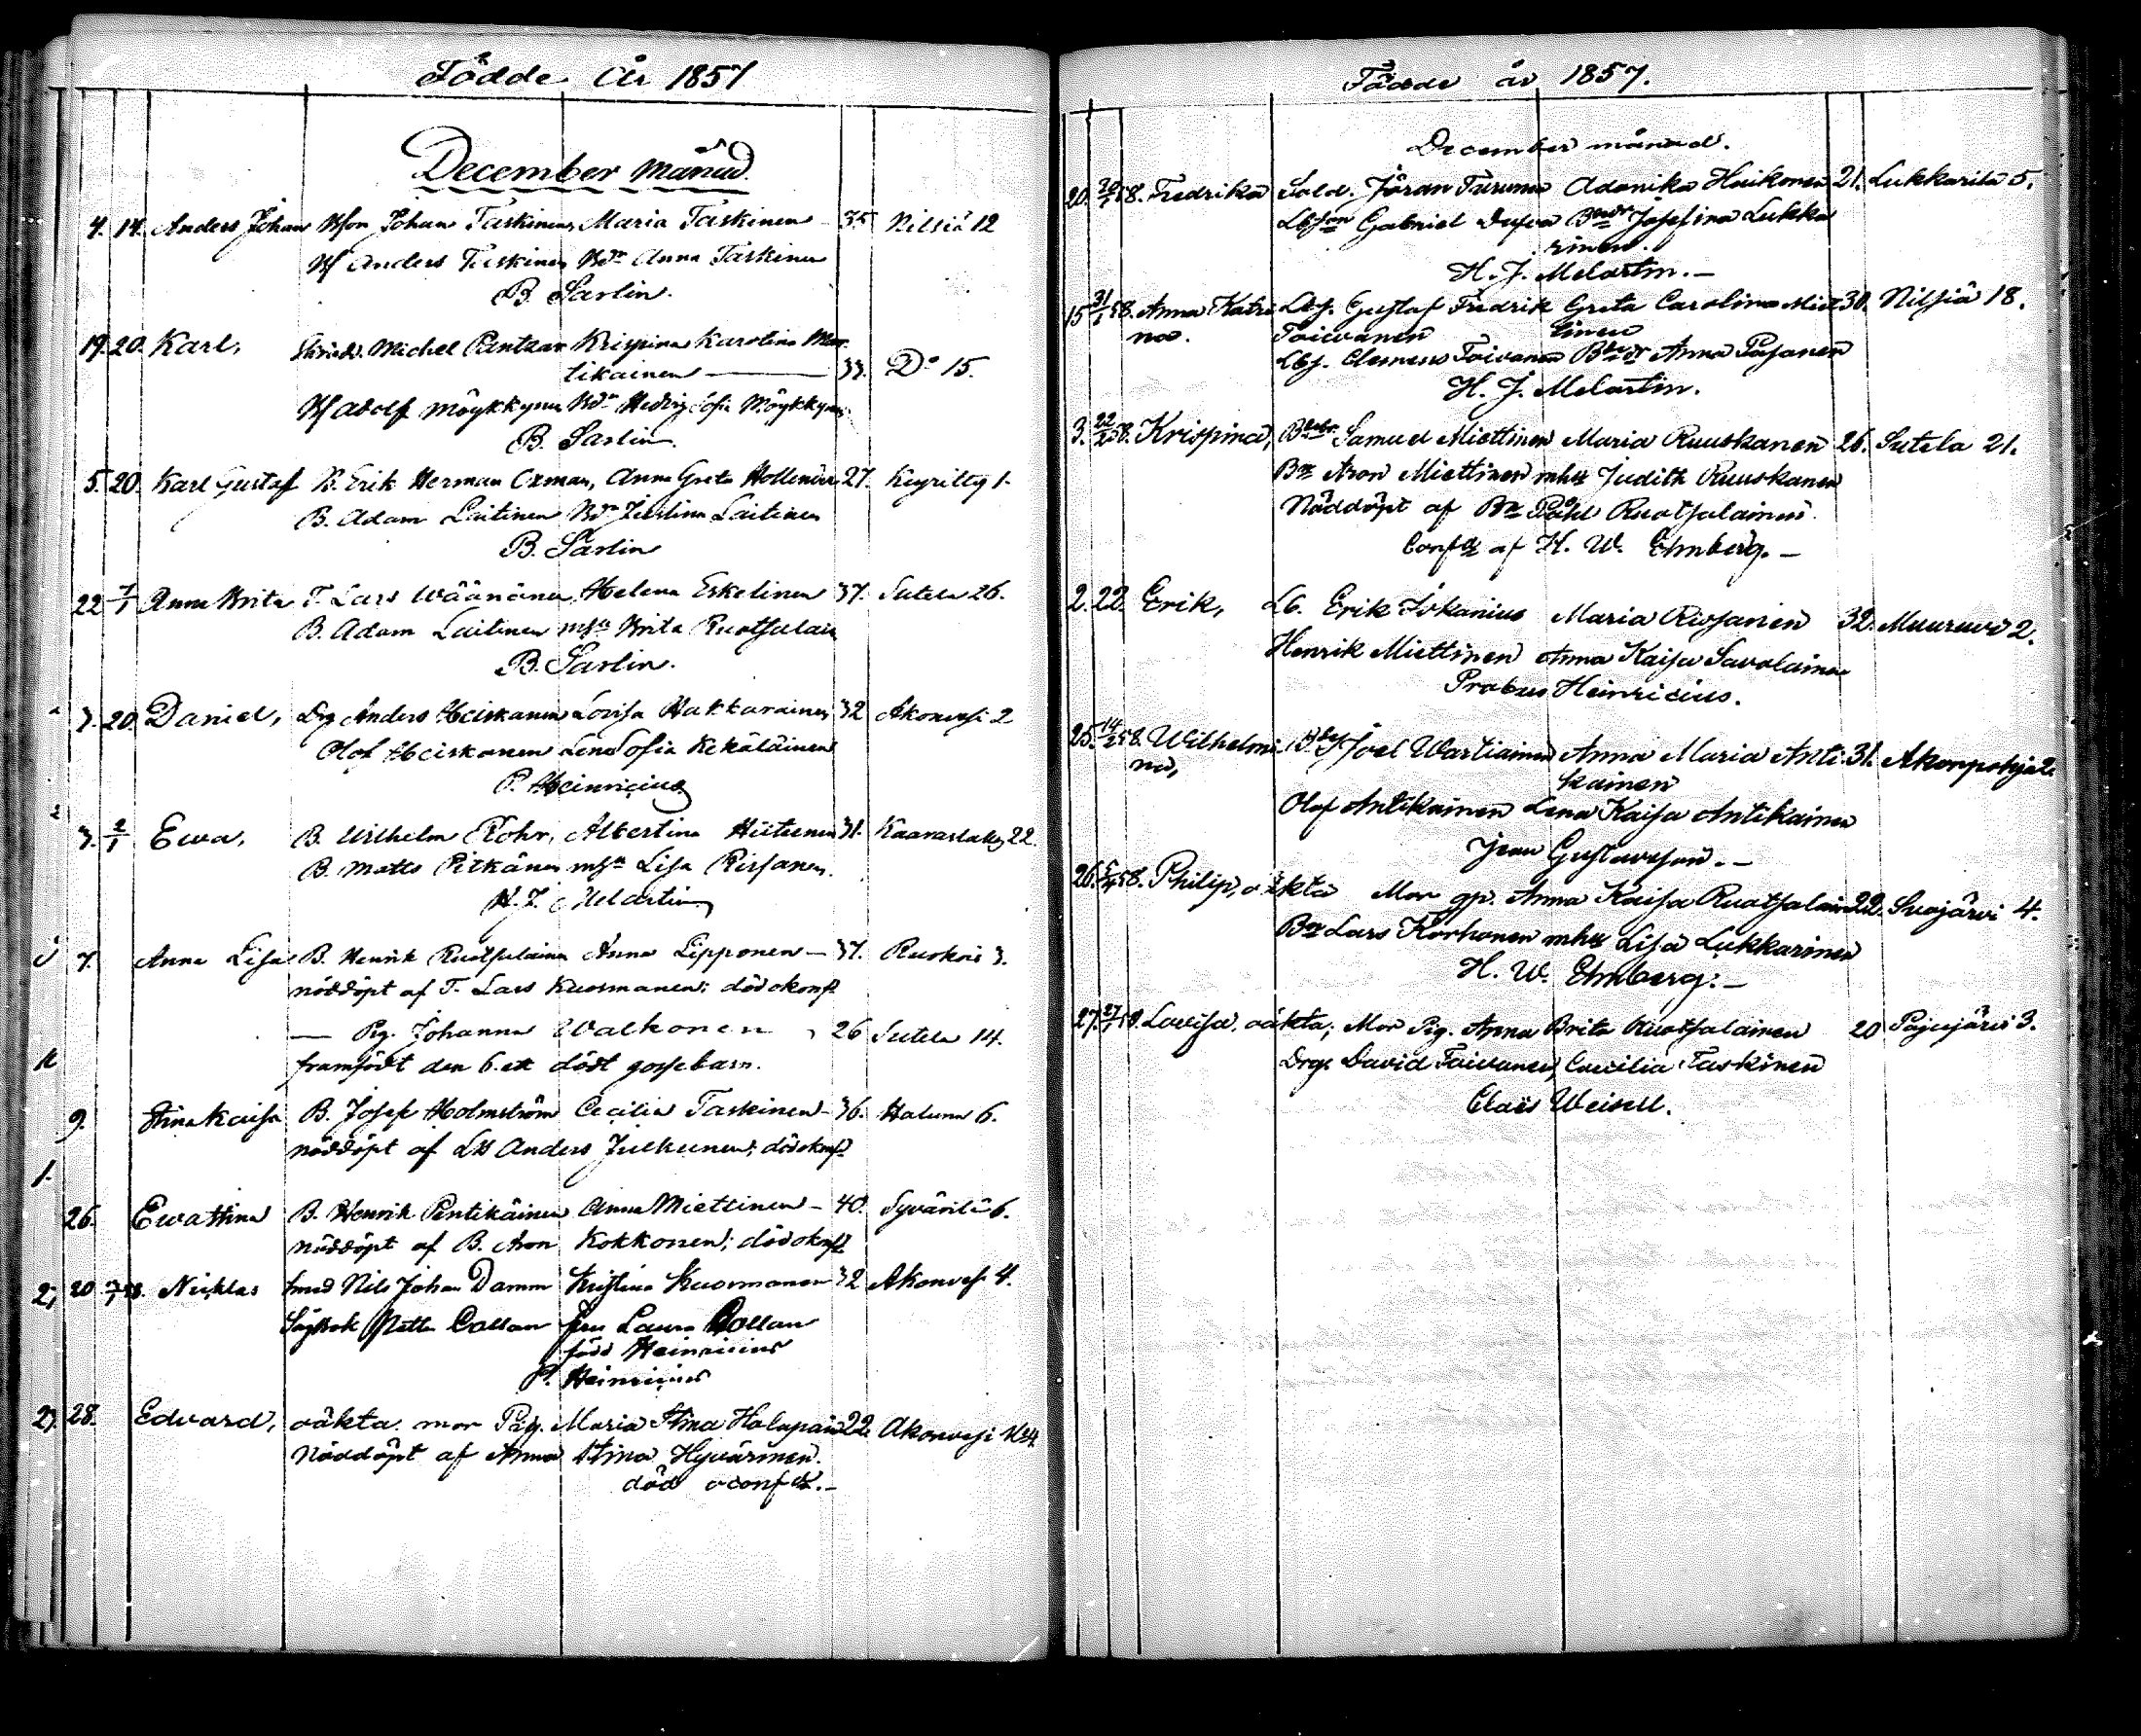 Födde År 1857
December Månad.
4. 14. Anders Johan Bson Johan Taskinen, Maria Taskinen - 35 Nilsiä 12
Bf Anders Taskinen Bdr Anna Taskinen
B. Sarlin.
19. 20. Karl, Skräd. Michel Pantzar Krispina Karolina Mar
tikainen — 33. Do 15.
Bf Adolf Möykkynen Bdr Hedvig Sofia Möykkynen
B. Sarlin.
5. 20. Karl Gustaf B. Erik Herman Oxman, Anna Greta Hollmén 27. 1.
B. Adam Laitinen Bdr Justina Laitinen
B. Sarlin
22 7/1 Anna Brita T. Lars Wäänänen, Helena Eskelinen 37. Sutela 26.
B. Adam Laitinen mhu Brita Ruotsalain
B. Sarlin.
3. 20. Daniel, Drg Anders Heiskanen Lovisa Hakkarainen 32 Akonvesi 2
Olof Heiskanen Lena Sofia Kekäläinen
P. Heinricius
3. 2/1 Ewa, B. Wilhelm Rohr, Albertina Hiitunen 31. Kaavarlaks 22.
B. Matts Pitkänen mhu Lisa Rissanen.
H. J. Melartin
7. Anna Lisa B. Henrik Ruotsalainen Anna Lipponen — 37. Ruokois 3.
nöddöpt af T. Lars Kuosmanen; död okonf.
— Pig. Johanna Walkonen, 26 Sutela 14.
framfödt den 6. ett dödt gossebarn.
9. Stina Kaisa B. Josef Holmström Cecilia Taskinen - 36. Haluna 6.
nöddöpt af Lb Anders Julkunen; död okonf.
26. Ewa Stina B. Henrik Pentikäinen Anna Miettinen - 40. Syvärilä 6.
nöddöpt af B. Aron Kokkonen; död okonf.
20 7/1 58. Nicklas Smed Nils Johan Damm Kristina Kuosmanen 32 Akonvesi 4.
Collan fru Laura Collan
född Heinricius
P. Heinricius
27. 28. Edvard, oäkta. mor Pig. Maria Stina Holapain 22. Akonvesi No 4
Nöddöpt af Anna Stina Hyvärinen.
död oconf.—
Födde år 1857.
December månad.
20. 20/1 58. Fredrika Sold. Jöran Turunen Adamika Huikonen 21. Lukkarila 5.
Lbson Gabriel Dufva Bdr Josefina Lukka
rinen.
H. J. Melartin.—
15 31/1 58. Anna Katri Lbs. Gustaf Fredrik Greta Carolina Miet 30. Nilsiä 18.
na. Toivanen tinen
Lbs. Clemens Toivanen Bdr Anna Pasanen
H. J. Melartin.
3. 22/2 58. Krispina, Samuel Miettinen Maria Ruuskanen 26. Sutela 21.
Bn Aron Miettinen mhu Judith Ruuskanen
Nöddöpt af Bn Påhl Ruotsalainen.
Conf af H. W. Ehnberg.—
2. 22. Erik, Lb. Erik Jokanius Maria Rissanen 32. Muuruvesi 2.
Henrik Miettinen Anna Kaisa Savolainen
Probus Heinricius.
25. 14/2 58. Wilhelmi Joel Wartiainen Anna Maria Anti 31. Akonpohja 2.
na, kainen
Olof Antikainen Lena Kaisa Antikainen
Jean Gustavsson.—
26. 5/4 58. Philip, oäkta Mor gp. Anna Kaisa Ruotsalain 22. Suojärvi 4.
Bn Lars Korhonen mhu Lisa Lukkarinen
H. W. Ehnberg.—
27. 27/1 58. Lovisa, oäkta, Mor Pig. Anna Brita Ruotsalainen 20 Pajujärvi 3.
Drg. David Toivanen, Caecilia Taskinen
Claës Weisell.